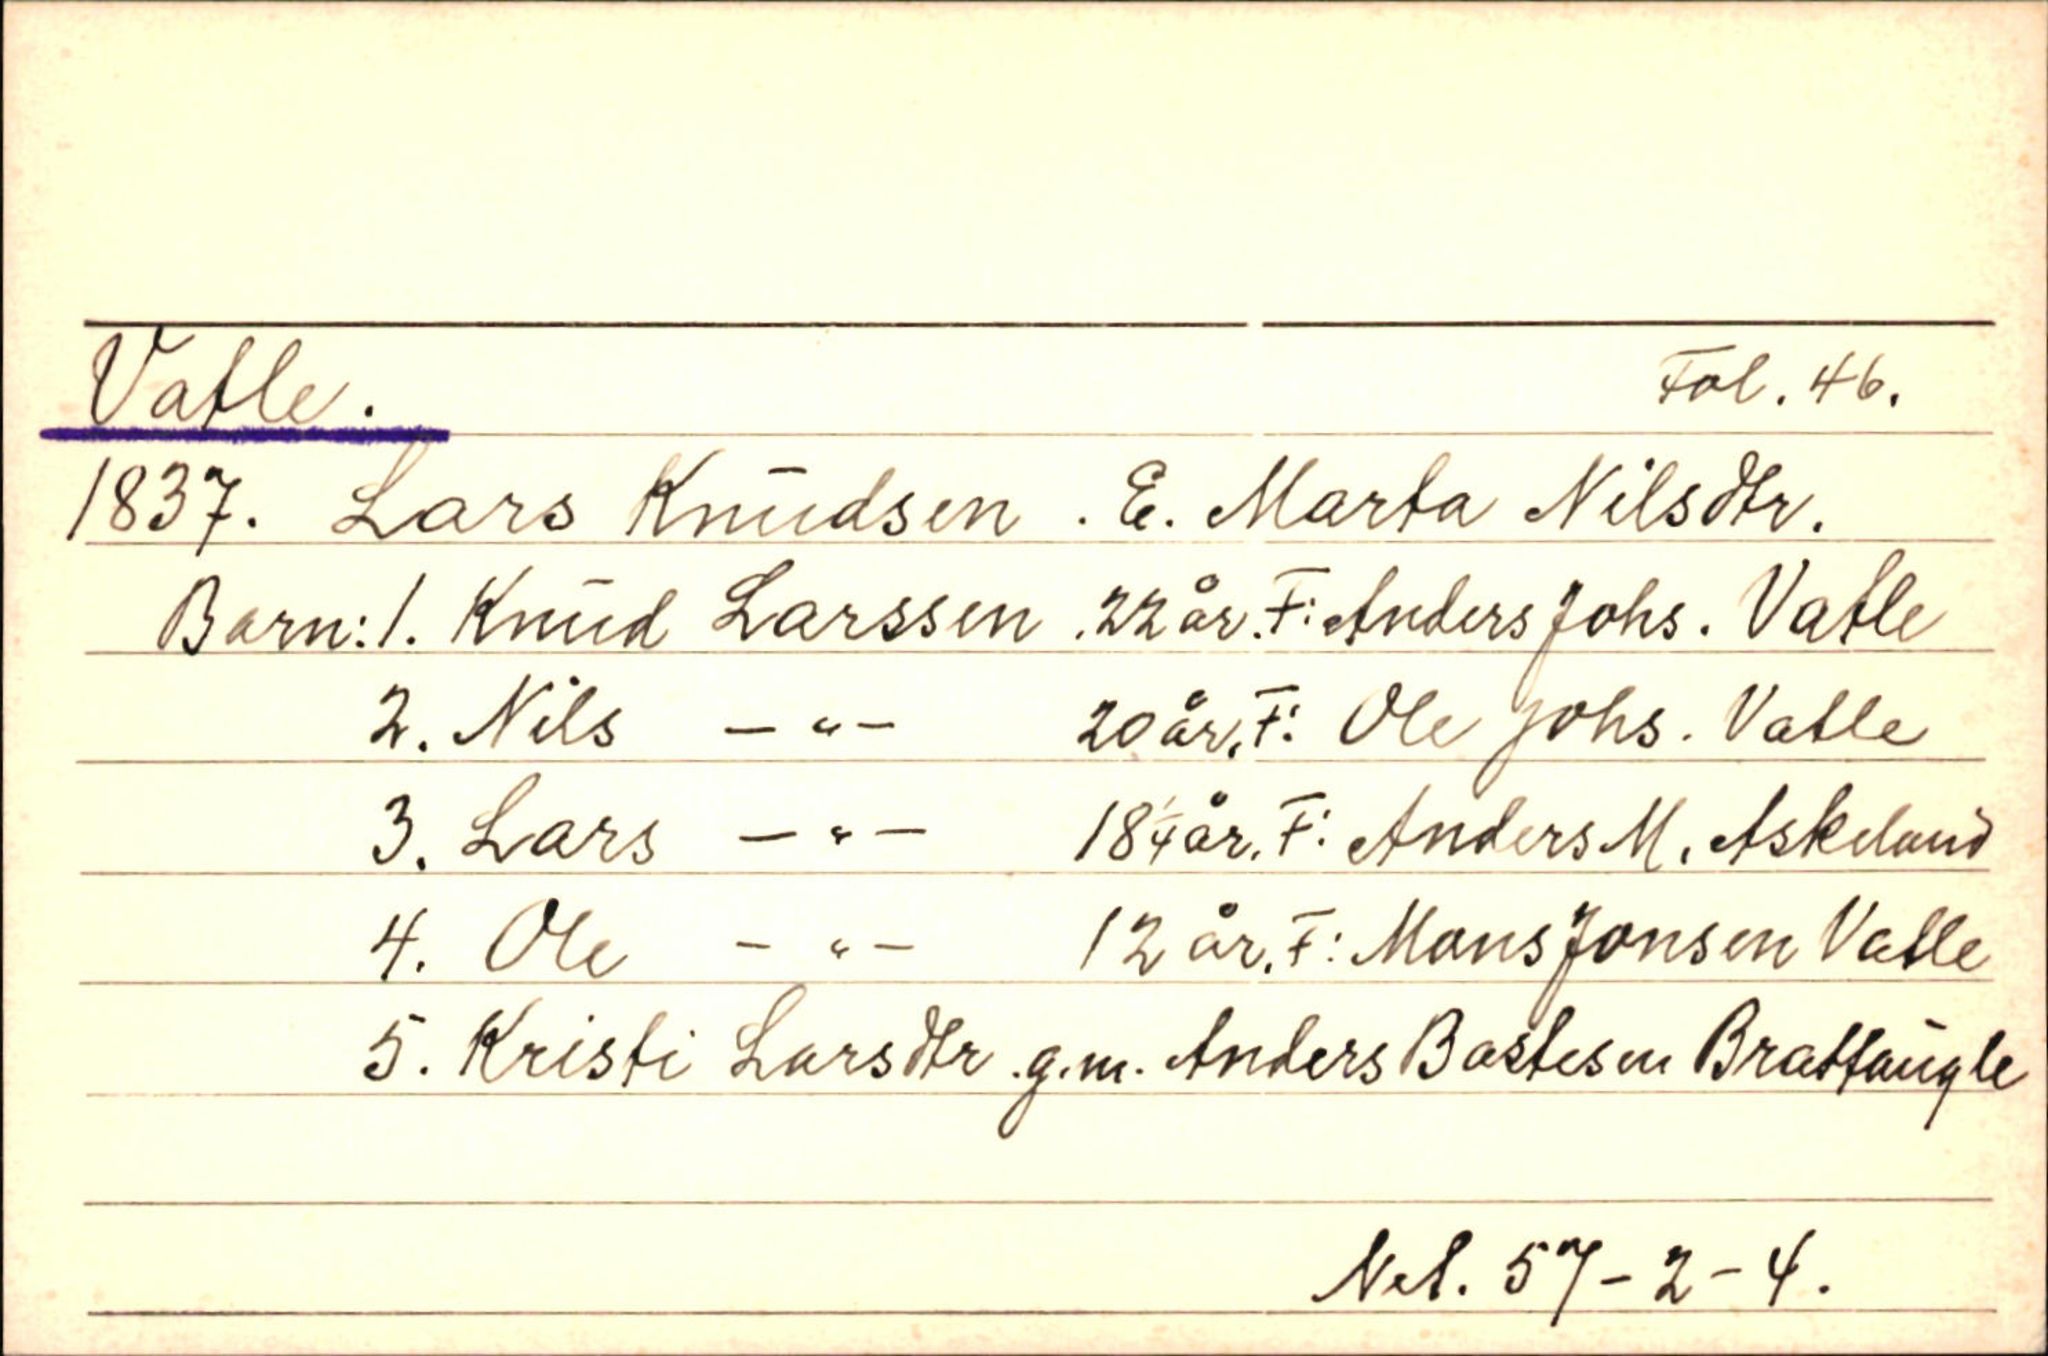 Vatle. Fol. 46.
1837. Lars Knudsen . E. Marta Nilsdtr.
Barn: 1. Knud Larssen . 22 år. F: Anders Johs. Vatle
2. Nils — " — 20 år. F: Ole Johs. Vatle
3. Lars — " — 18 1/4 år. F: Anders M. Askeland
4. Ole — " — 12 år. F: Mons Jonsen Vatle
5. Kristi Larsdtr . g.m. Anders Bastesen Brattaugle
Net. 57 - 2 - 4.